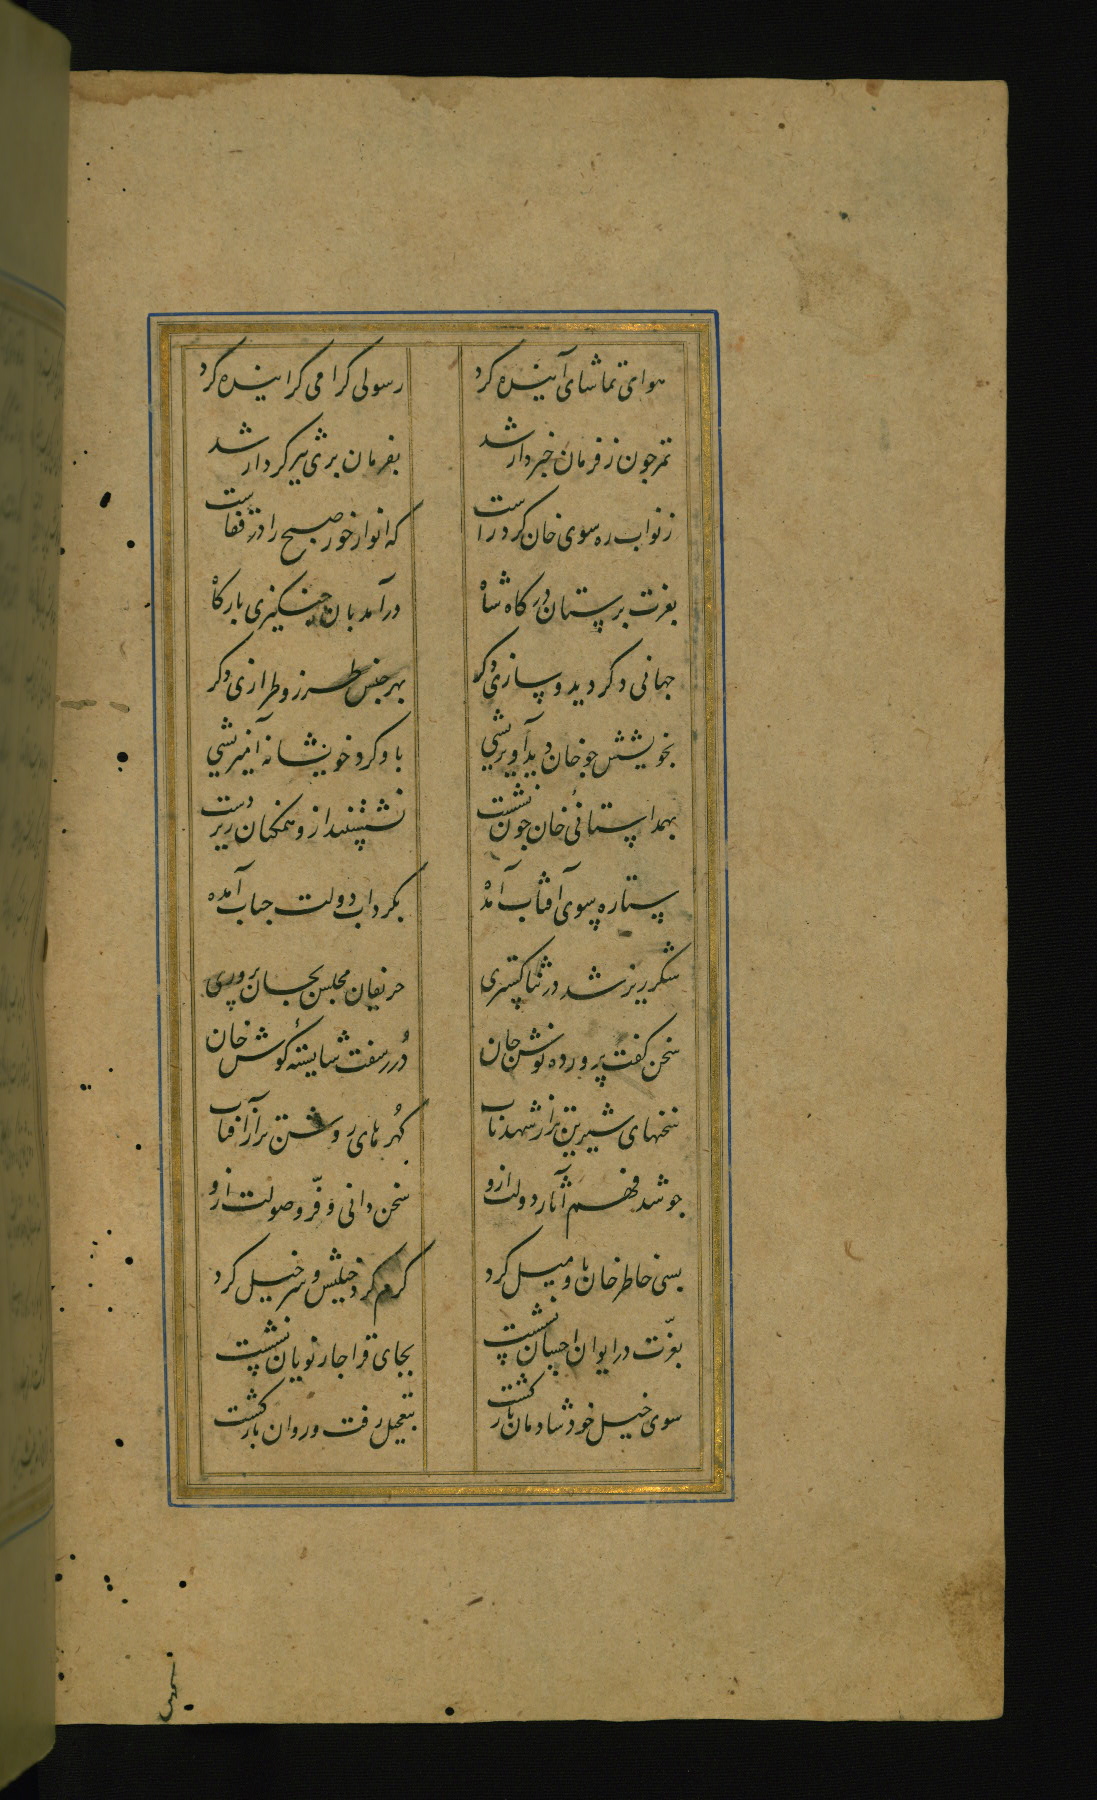 هوای تماشای آینده کرد رسولی گرامی گراینده کرد
تمر جون ز فرمان خبردار شد بفرمان بری تیزکردار شد
ز نواب ره سوی خان کرد راست که انوار خور صبح را در قفاست
بعزت برستان درکاه شاه درآمد بان جنکیزی بارکاه
جهانی دکر دید و سازی دکر بهر جنس طرز و طرازی دکر
بخویشش جو خان دید آویزشی باو کرد خویشانه آمیزشی
بهمداستانئ خان جون نشست نشستند ازو همکنان زیردست
ستاره سوی آفتاب آمده بکرداب دولت حباب آمده
شکرریز شد در ثناکستری حریفان مجلس بجان پروری
سخن کفت پرورده نوش جان دُرر سفت شایستهٔ کوش خان
سخنهای شیرین تر از شهد ناب کُهرهای روشن تر از آفتاب
جو شد فهم آثار دولت ازو سخن دانی و فرّ و صولت ازو
بسی خاطر خان باو میل کرد کرم کرد خیلیش و سرخیل کرد
بعزّت در ایوان احسان نشست بجای قراجار نویان نشست
سوی خیل خود شادمان بازکشت بتعجیل رفت و روان بازکشت